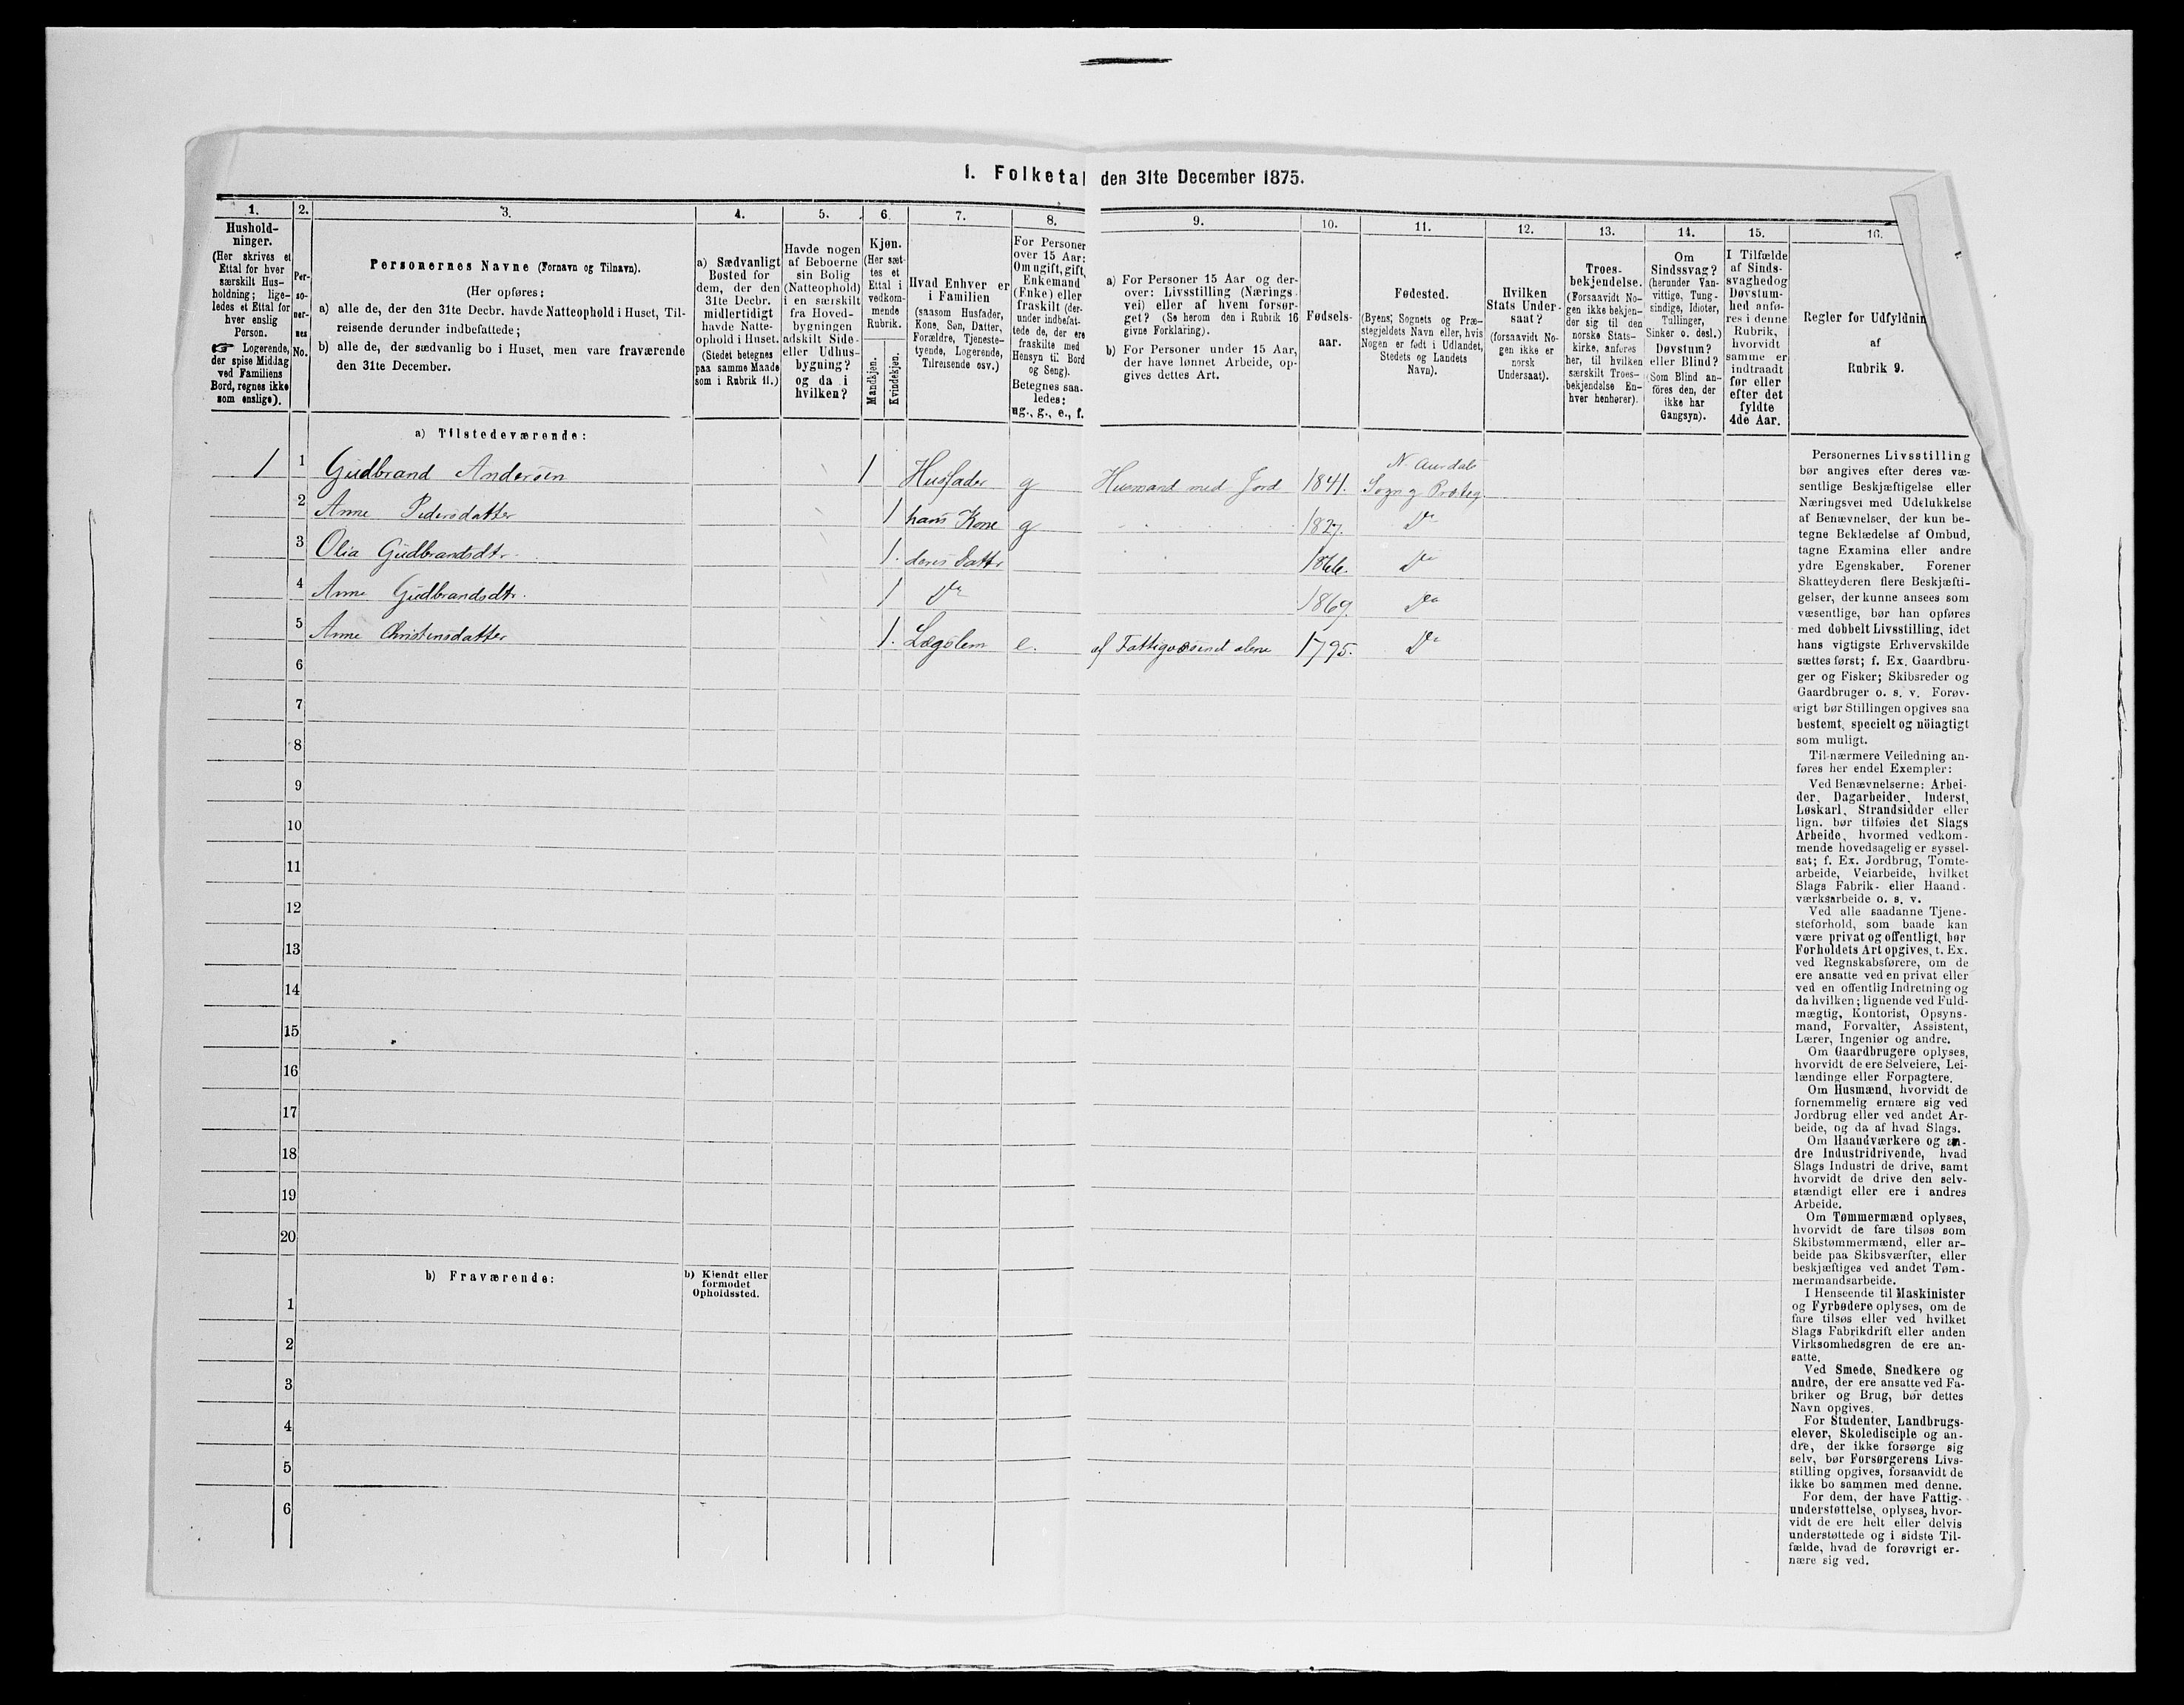 1. Folketal den 31te December 1875.
1.
Hushold-
ninger.
(Her skrives et
Ettal for hver
særskilt Hus-
holdning; lige-
ledes et Ettal for
hver enslig
Person.
☞ Logerende,
der spise Middag
ved Familiens
Bord, regnes ikke
som enslige).
2.
Per-
so-
ner-
nes
No.
3.
Personernes Navne (Fornavn og Tilnavn).
(Her opføres:
a) alle de, der den 31te Decbr. havde Natteophold i Huset, Til-
reisende derunder indbefattede;
b) alle de, der sædvanlig bo i Huset, men vare fraværende
den 31te December.
4.
a) Sædvanligt
Bosted for
dem, der den
31te Decbr.
midlertidigt
havde Natte-
ophold i Huset.
(Stedet betegnes
paa samme Maade
som i Rubrik 11.)
5.
Havde nogen
af Beboerne
sin Bolig
(Natteophold)
i en særskilt
fra Hoved-
bygningen
adskilt Side-
eller Udhus-
bygning?
og da i
hvilken?
6.
Kjøn.
(Her sæt-
tes et
Ettal i
vedkom-
mende
Rubrik.
Mandkjøn.
Kvindekjøn.
7.
Hvad Enhver er
i Familien
(saasom Husfader,
Kone, Søn, Datter,
Forældre, Tjeneste-
tyende, Logerende,
Tilreisende osv.)
8.
For Personer
over 15 Aar:
Om ugift, gift,
Enkemand
(Enke) eller
fraskilt (der-
under indbefat-
tede de, der ere
fraskilte med
Hensyn til Bord
og Seng).
Betegnes saa-
ledes:
ug., g., e., f.
9.
a) For Personer 15 Aar og der-
over: Livsstilling (Nærings-
vei) eller af hvem forsør-
get? (Se herom den i Rubrik 16
givne Forklaring).
b) For Personer under 15 Aar,
der have lønnet Arbeide, op-
gives dettes Art.
10.
Fødsels-
aar.
11.
Fødested.
(Byens, Sognets og Præ-
stegjeldets Navn eller, hvis
Nogen er født i Udlandet,
Stedets og Landets
Navn).
12.
Hvilken
Stats Under-
saat?
(forsaavidt No-
gen ikke er
norsk
Undersaat).
13.
Troes-
bekjendelse.
(Forsaavidt No-
gen ikke bekjen-
der sig til den
norske Stats-
kirke, anføres
her, til hvilken
særskilt Troes-
bekjendelse En-
hver henhører).
14.
Om
Sindssvag?
(herunder Van-
vittige, Tung-
sindige, Idioter,
Tullinger,
Sinker o. desl.)
Døvstum?
eller Blind?
(Som Blind an-
føres den, der
ikke har
Gangsyn).
15.
I Tilfælde
af Sinds-
svaghed og
Døvstum-
hed anfø-
res i denne
Rubrik,
hvorvidt
samme er
indtraadt
før eller
efter det
fyldte
4de Aar.
16.
Regler for Udfyldnin
af
Rubrik 9.
a) Tilstedeværende:
1 1 Gudbrand Andersen 1 Husfader g Husmand med Jord 1841. N. Aurdals Sogn og Præsteg.
2 Anne Pedersdatter 1 hans Kone g 1827. Do
3 Olia Gudbrandsdtr. 1. deres Datter 1866. Do
4 Anne Gudbrandsdtr. 1 Do 1869. Do
5 Anne Christensdatter 1. Lægslem e. af Fattigvæsenet alene 1795. Do
6
7
8
9
10
11
12
13
14
15
16
17
18
19
20
b) Fraværende:
b) Kiendt eller
formodet
Opholdssted.
1
2
3
4
5
6
Personernes Livsstilling
bør angives efter deres væ-
sentlige Beskjæftigelse eller
Næringsvei med Udelukkelse
af Benævnelser, der kun be-
tegne Beklædelse af Ombud,
tagne Examina eller andre
ydre Egenskaber. Forener
Skatteyderen flere Beskjæfti-
gelser, der kunne ansees som
væsentlige, bør han opføres
med dobbelt Livsstilling, idet
hans vigtigste Erhvervskilde
sættes først; f. Ex. Gaardbru-
ger og Fisker; Skibsreder og
Gaardbruger o. s. v. Forøv-
rigt bør Stillingen opgives saa
bestemt, specielt og nöiagtigt
som muligt.
Til nærmere Veiledning an-
føres her endel Exempler:
Ved Benævnelserne: Arbei-
der, Dagarbeider, Inderst,
Løskarl, Strandsidder eller
lign. bør tilføies det Slags
Arbeide, hvormed vedkom-
mende hovedsagelig er syssel-
sat; f. Ex. Jordbrug, Tomte-
arbeide, Veiarbeide, hvilket
Slags Fabrik- eller Haand-
værksarbeide o. s. v.
Ved alle saadanne Tjene-
steforhold, som baade kan
være privat og offentligt, bør
Forholdets Art opgives, t. Ex.
ved Regnskabsførere, om de
ere ansatte ved en privat eller
ved en offentlig Indretning og
da hvilken; lignende ved Fuld-
mægtig, Kontorist, Opsyns-
mand, Forvalter, Assistent,
Lærer, Ingeniør og andre.
Om Gaardbrugere oplyses,
hvorvidt de ere Selveiere, Lei-
lændinge eller Forpagtere.
Om Husmænd, hvorvidt de
fornemmelig ernære sig ved
Jordbrug eller ved andet Ar-
beide, og da af hvad Slags.
Om Haandværkere og an-
dre Industridrivende, hvad
Slags Industri de drive, samt
hvorvidt de drive den selv-
stændigt eller ere i andres
Arbeide.
Om Tømmermænd oplyses,
hvorvidt de fare tilsøs som
Skibstømmermænd, eller ar-
beide paa Skibsværfter, eller
beskjæftiges ved andet Tøm-
mermandsarbeide.
I Henseende til Maskinister
og Fyrbødere oplyses, om de
fare tilsøs eller ved hvilket
Slags Fabrikdrift eller anden
Virksomhedsgren de ere an-
satte.
Ved Smede, Snedkere og
andre, der ere ansatte ved Fa-
briker og Brug, bør dettes
Navn opgives.
For Studenter, Landbrugs-
elever, Skoledisciple og an-
dre, der ikke forsørge sig
selv, bør Forsørgerens Livs-
stilling opgives, forsaavidt de
ikke bo sammen med denne.
For dem, der have Fattig-
understøttelse, oplyses, hvor-
vidt de ere helt eller delvis
understøttede og i sidste Til-
fælde, hvad de forøvrigt er-
nære sig ved.